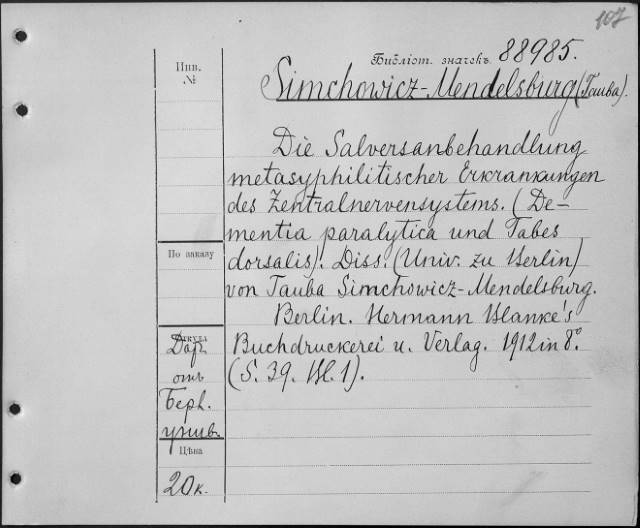 107
Библіот. значекъ 88985.
Инв.
№
Simchowicz-Mendelsburg (Tauba).
Die Salversanbehandlung
metasyphilitischer Erkrankungen
des Zentralnervensystems. (De-
mentia paralytica und Tabes
dorsalis). Diss. (Univ. zu Berlin)
По заказу
von Tauba Simchowicz-Mendelsburg.
Berlin. Hermann Blanke's
Откуда
Даръ
Buchdruckerei u. Verlag. 1912 in 8.°
отъ
(S. 39. Bl. 1).
Берл.
унив.
Цѣна
20 к.